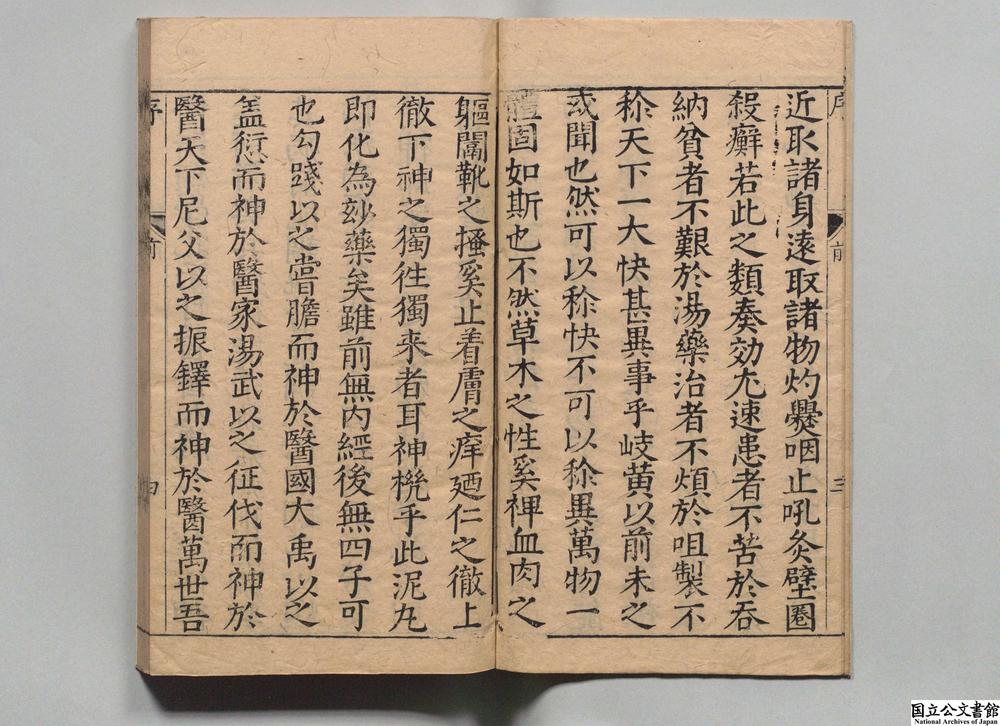 近取諸身遠取諸物灼爨咽止吼灸壁圈
殺癬若此之類奏効尤速患者不苦於吞
納貧者不艱於湯藥治者不煩於咀製不
稌天下一大快甚異事乎岐黄以前未之
或聞也然可以稌快不可以稌異萬物一
體固如斯也不然草木之性奚裨血肉之
軀闈靴之搔奚止着膚之痒廼仁之徹上
徹下神之獨徃獨来者耳神櫈乎此泥丸
即化為玅藥矣雖前無内經後無四子可
也勾踐以之嘗膽而神於醫國大禹以之
盖愆而神於醫家湯武以之征伐而神於
醫天下尼父以之振鐸而神於醫萬世吾
序
前
三
序
前
四
国立公文書館
National Archives of Japan